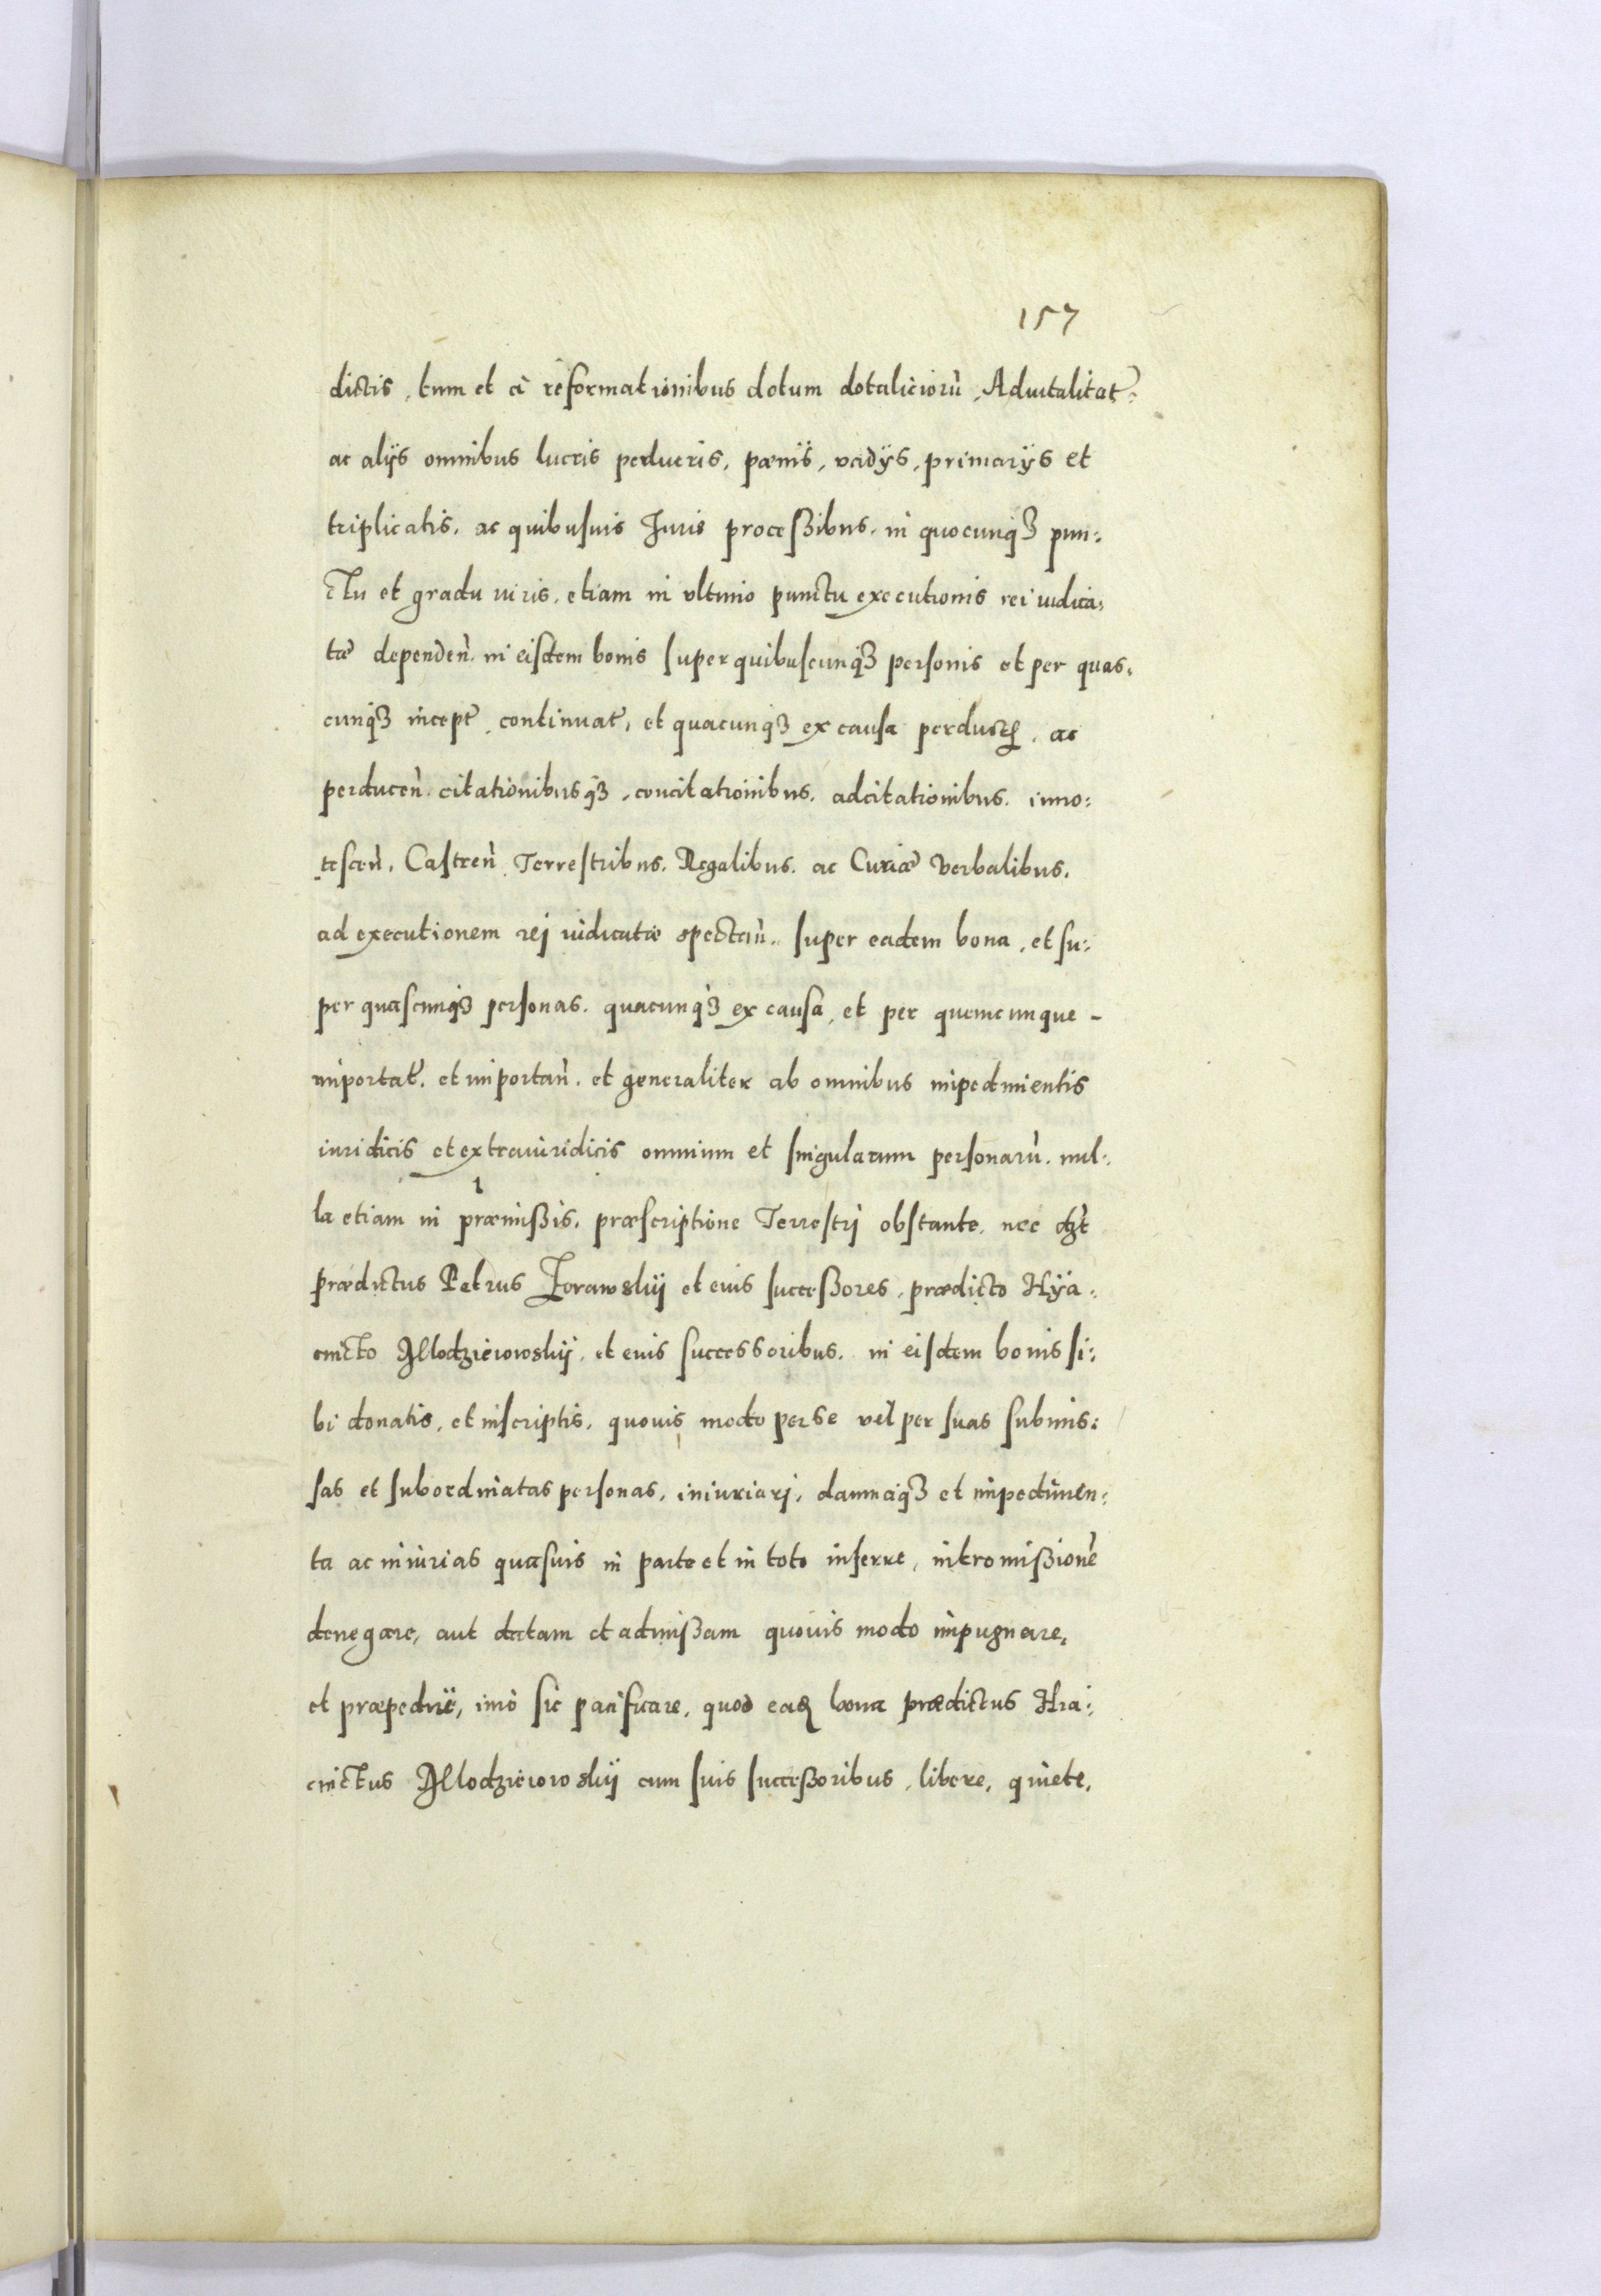 157
dictis, tum et à reformationibus dotum dotaliciorũ, Aduitalitat̃:
ac alijs omnibus lucris perlucris, pænis, vadijs, primarijs et
triplicatis, ac quibusuis Juris proceßibus, in quocunqȝ pun:
ctu et gradu iuris, etiam in vltimo punctu executionis rei iudica:
tæ dependeñ. in eisdem bonis super quibuscunqȝ personis et per quas:
cunqȝ incept̃, continuat̃, et quacunqȝ ex causa perduct̃, ac
perduceñ. citationibusqȝ, concitationibus, adcitationibus, inno:
tesceñ, Castreñ Terrestribus, Regalibus, ac Curiæ verbalibus,
ad executionem rej iudicatæ spectañ. super eadem bona, et su:
per quascunqȝ personas, quacunqȝ ex causa, et per quemcunque -
importat̃, et importañ, et generaliter ab omnibus impedimentis
iuridicis et extraiuridicis omnium et singularum personarũ, nul:
la etiam in præmißis, præscriptione Terrestrj obstante, nec
prædictus Petrus Zorawskij et eius succeßores, prædicto Hÿa:
cincto Młodzieiowskij, et eius successoribus, in eisdem bonis si:
bi donatis, et inscriptis, quouis modo per se vel per suas submis:
sas et subordinatas personas, iniuriarj, damnaqȝ et impedimen:
ta ac iniurias quasuis in parte et in toto inferre, intromißionẽ
denegare, aut datam et admißam quouis modo impugnare,
et præpedire, imò sic pacificare, quod eaq̃ bona prædictus Hia:
cinctus Młodzieiowskij cum suis succeßoribus, libere, quiete,